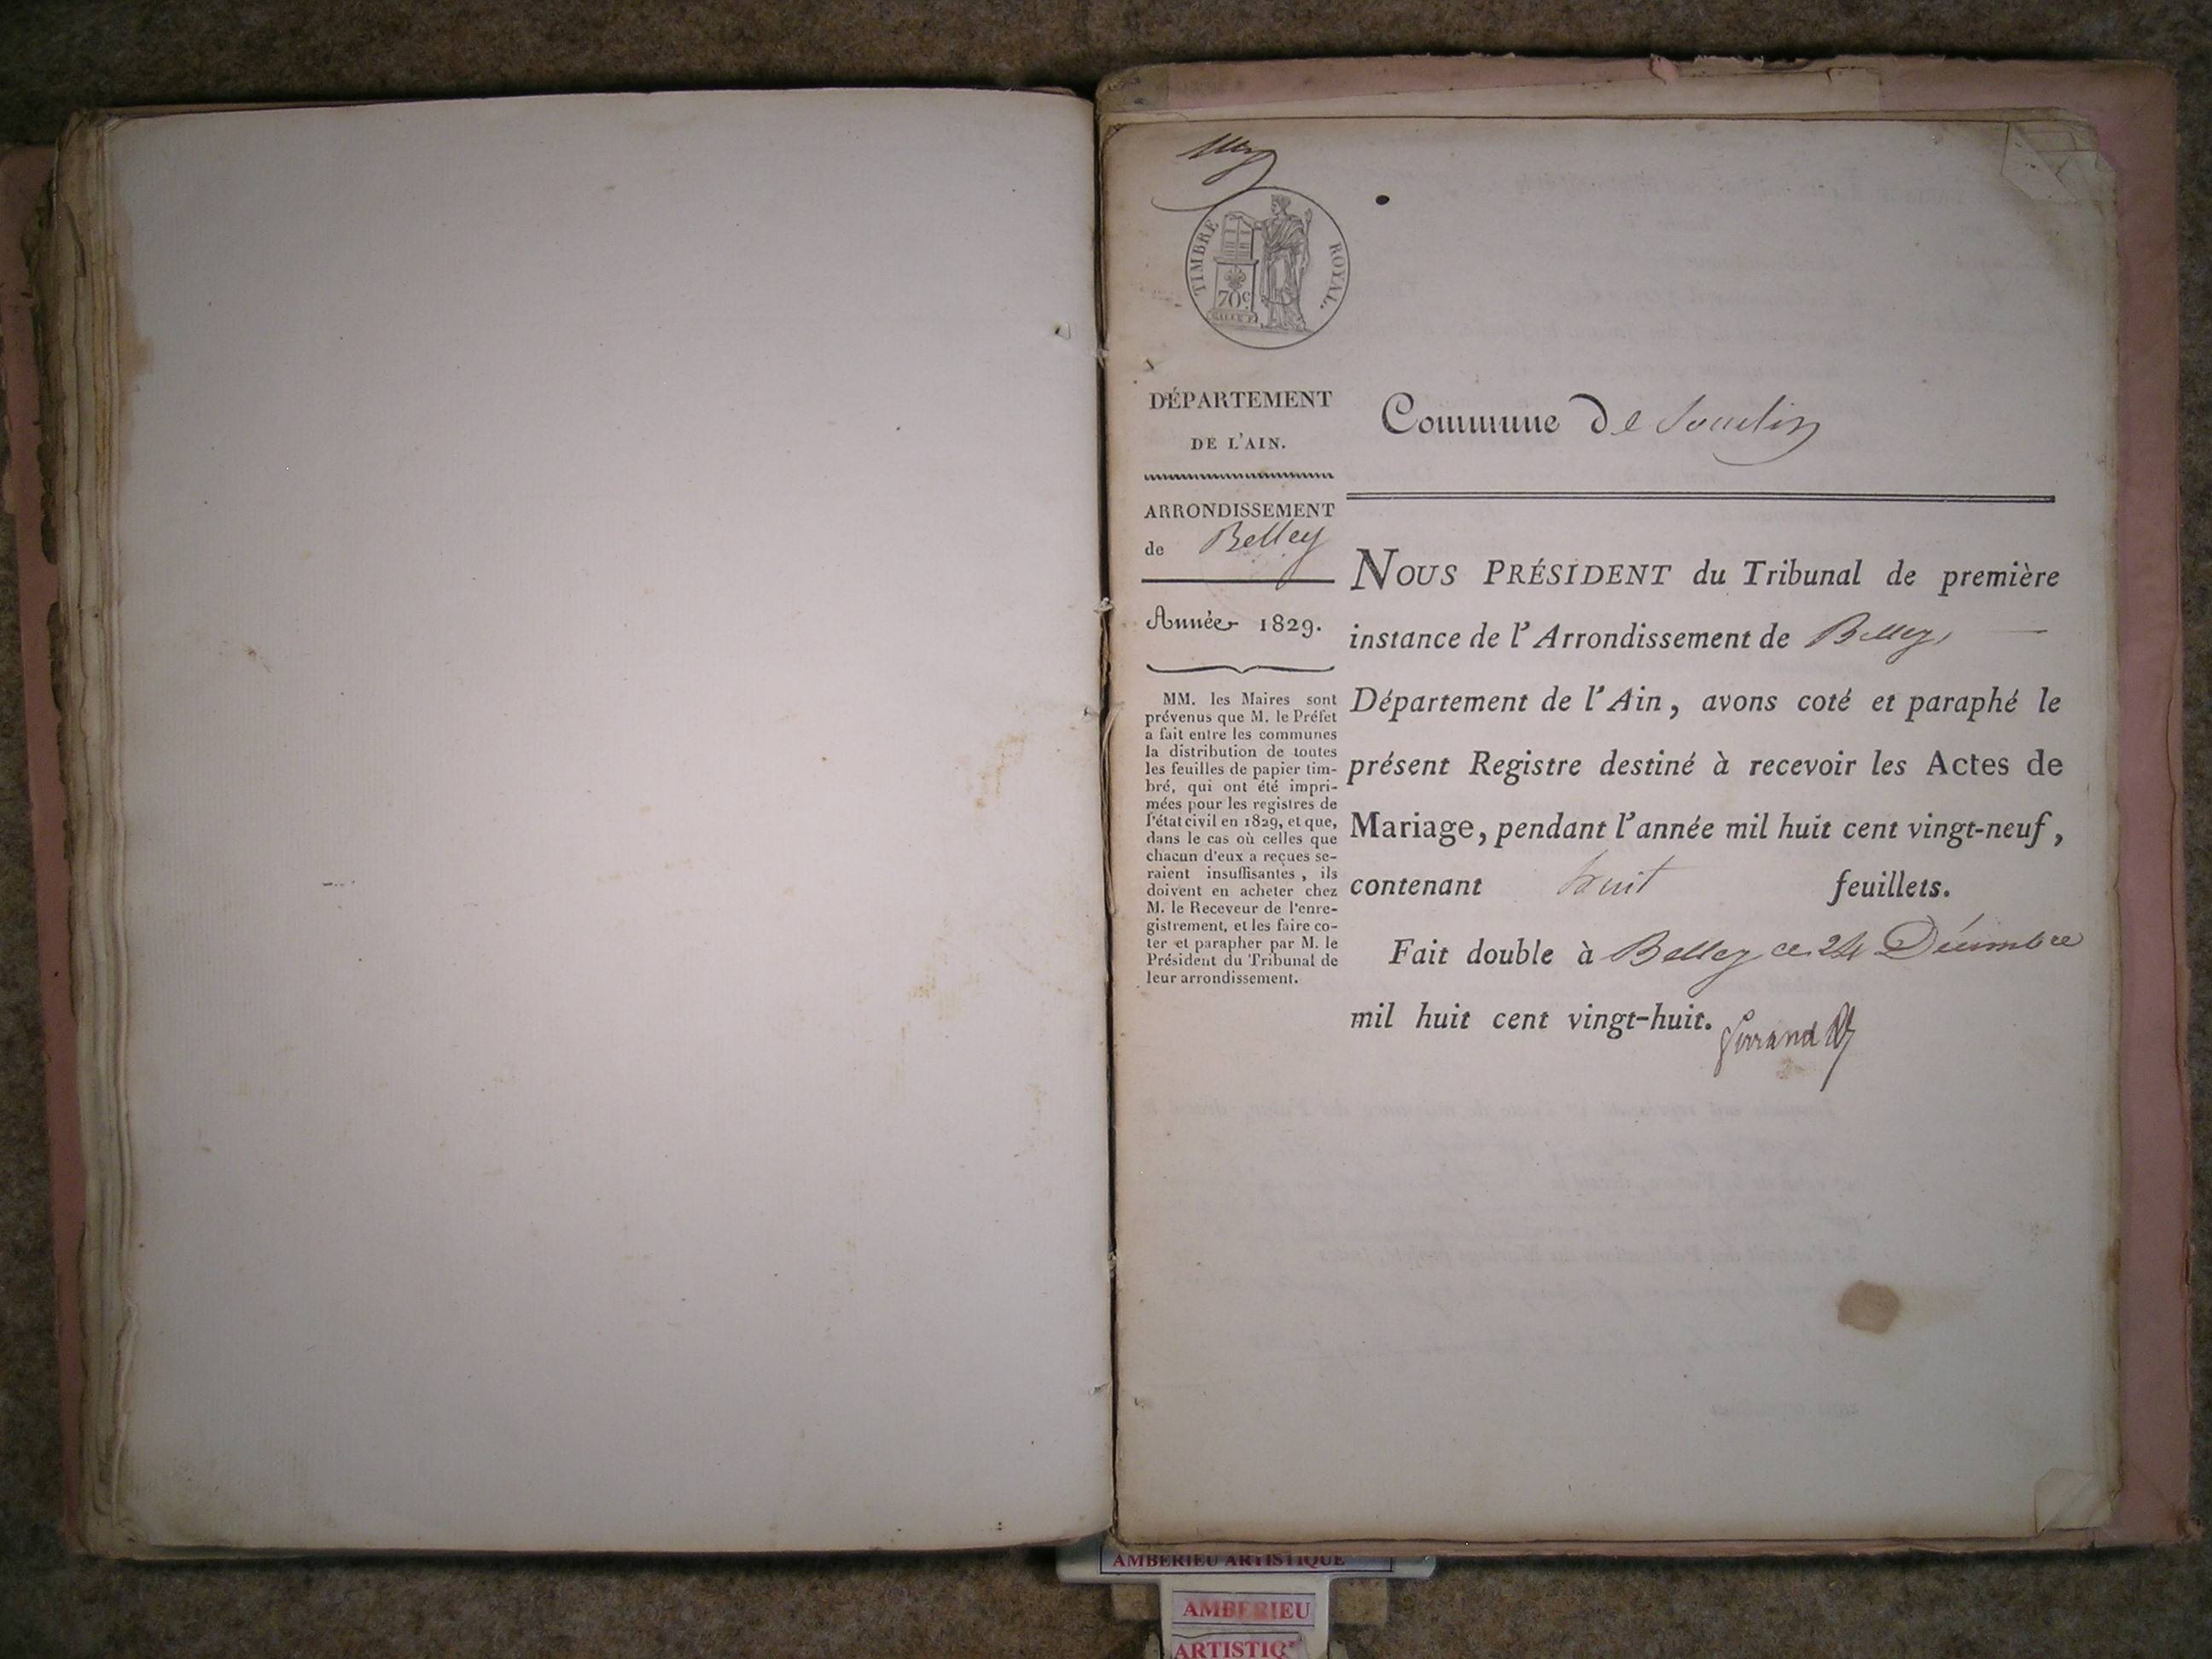 TIMBRE ROYAL.
70c
DÉPARTEMENT
DE L'AIN.
ARRONDISSEMENT
de Belley
Année 1829.
MM. les Maires sont
prévenus que M. le Préfet
a fait entre les communes
la distribution de toutes
les feuilles de papier tim-
bré, qui ont été impri-
mées pour les registres de
l'état civil en 1829, et que,
dans le cas où celles que
chacun d'eux a reçues se-
raient insuffisantes, ils
doivent en acheter chez
M. le Receveur de l'enre-
gistrement, et les faire co-
ter et parapher par M. le
Président du Tribunal de
leur arrondissement.
Commune De
NOUS PRÉSIDENT du Tribunal de première
instance de l'Arrondissement de Belley,
Département de l'Ain, avons coté et paraphé le
présent Registre destiné à recevoir les Actes de
Mariage, pendant l'année mil huit cent vingt-neuf,
contenant huit feuillets.
Fait double à Belley ce 24 Décembre
mil huit cent vingt-huit.
AMBERIEU ARTISTIQUE
AMBERIEU
ARTISTIQ